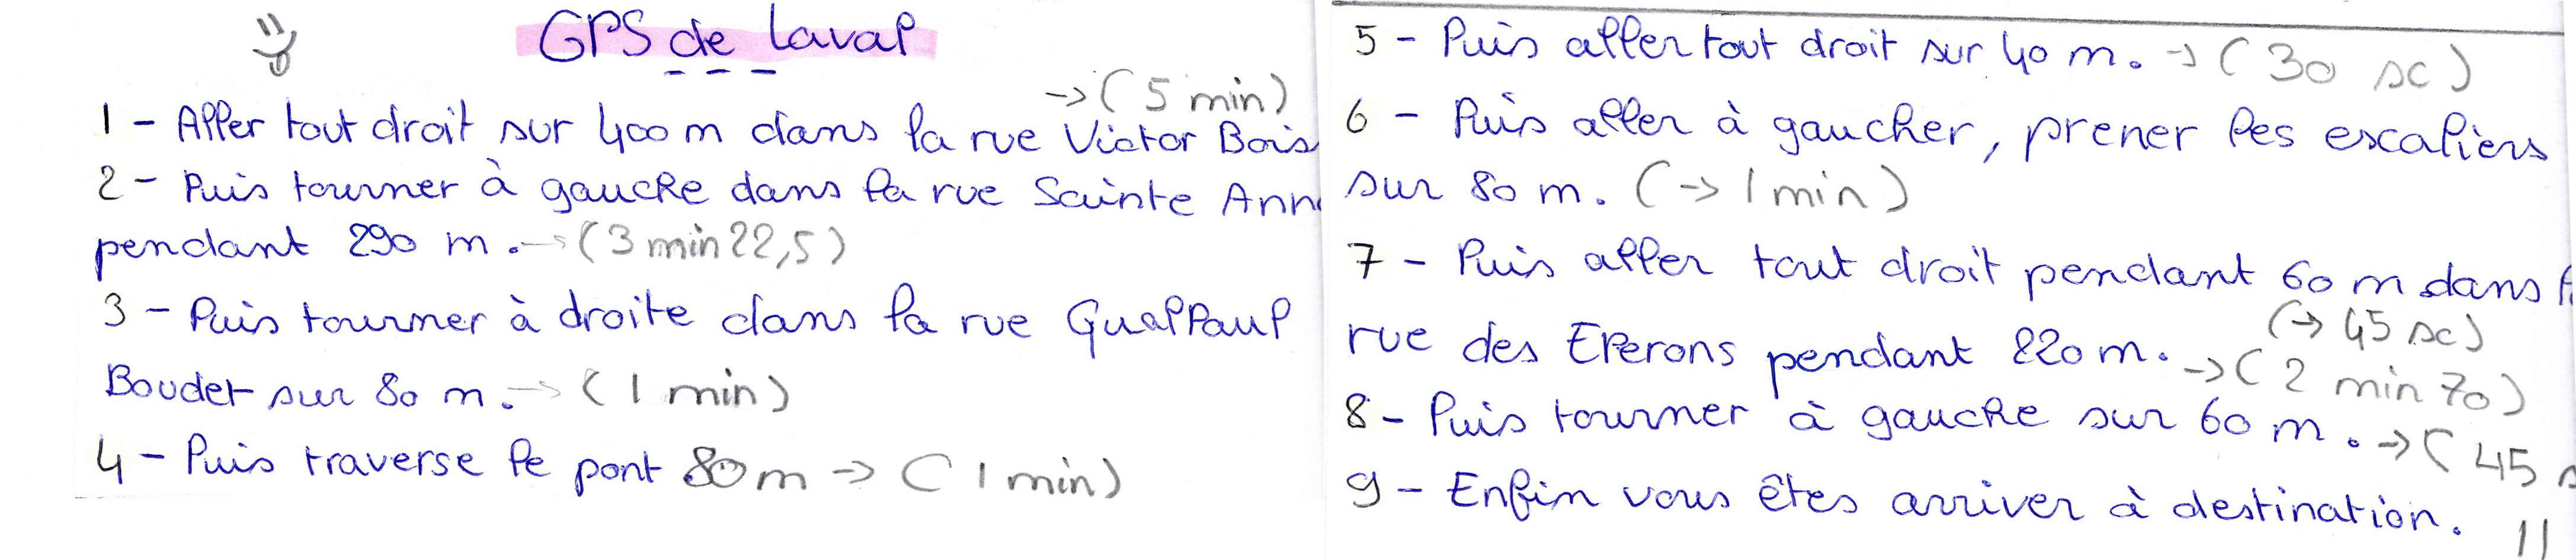 GPS de Laval
→ (5 min)
1 - Aller tout droit sur 400 m dans la rue Victor Bois
2 - Puis tourner à gauche dans la rue Sainte Ann
pendant 290 m. → (3 min 22,5)
3 - Puis tourner à droite dans la rue
Boudet sur 80 m. → (1 min)
4 - Puis traverse le pont 80 m → (1 min)
5 - Puis aller tout droit sur 40 m. → (30 sc)
6 - Puis aller à gaucher, prener les escaliers
sur 80 m. (→ 1 min)
7 - Puis aller tout droit pendant 60 m dans
(→ 45 sc)
rue des Eperons pendant 220 m. → (2 min 70)
8 - Puis tourner à gauche sur 60 m. → (45 s
9 - Enfin vous êtes arriver à destination.